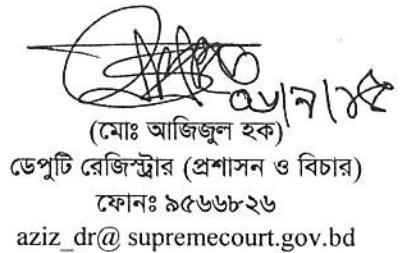 (মোঃ আজিজুল হক)
ডেপুটি রেজিস্ট্রার (প্রশাসন ও বিচার)
ফোনঃ ৯৫৬৬৮২৬
aziz_dr@ supremecourt.gov.bd